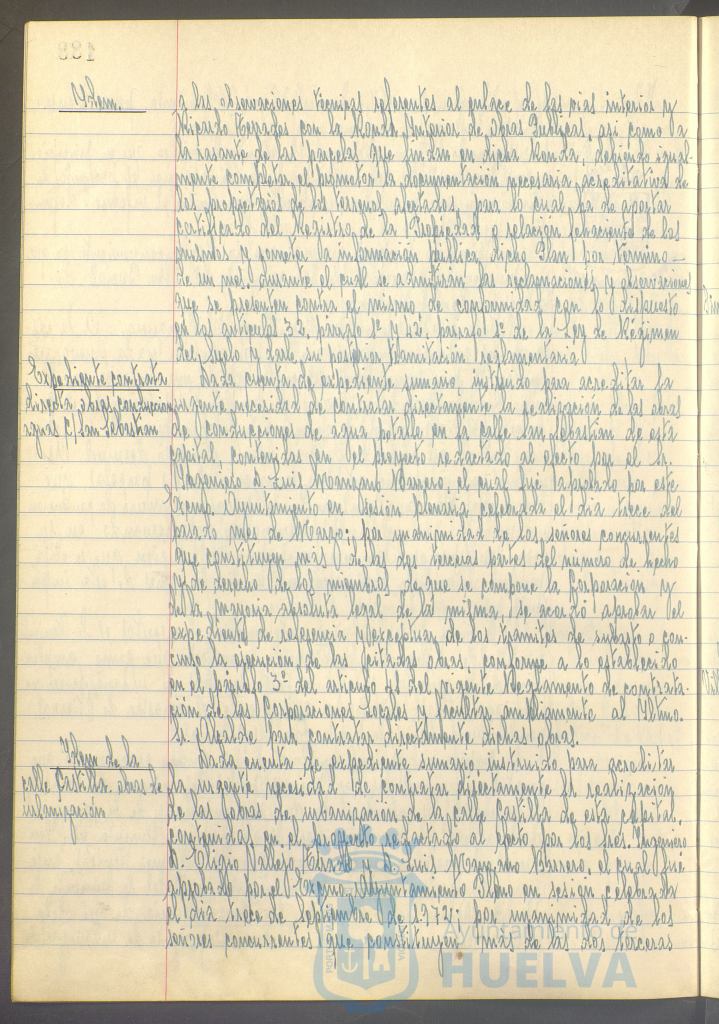 189
Idem.
a las observaciones técnicas referentes al enlace de las vías interior y
Ricardo Terrades con la Ronda Interior de Obras Públicas, así como a
la rasante de las parcelas que lindan en dicha Ronda, debiendo igual-
mente completar el promotor la documentación necesaria acreditativa de
los propietarios de los terrenos afectados, para lo cual ha de aportar
certificado del Registro de la Propiedad o relación fehaciente de los
mismos y someter a información pública dicho Plan por término
de un mes, durante el cual se admitirán las reclamaciones y observaciones
que se presenten contra el mismo de conformidad con lo dispuesto
en los artículos 32, párrafo 1º y 42, párrafo 1º de la Ley de Régimen
del Suelo y darle su posterior tramitación reglamentaria.
Expediente contrata
directa obras conducción
aguas C/ San Sebastián
Dada cuenta de expediente sumario, instruido para acreditar la
urgente necesidad de contratar directamente la realización de las obras
de conducciones de agua potable en la calle San Sebastián de esta
capital, contenidas en el proyecto redactado al efecto por el Sr.
Ingeniero D. Luis Manzano Barrero, el cual fué aprobado por este
Excmo. Ayuntamiento en sesión plenaria celebrada el día trece del
pasado mes de Marzo; por unanimidad de los señores concurrentes
que constituyen más de las dos terceras partes del número de hecho
y de derecho de los miembros de que se compone la Corporación y
de la mayoría absoluta legal de la misma, se acordó aprobar el
expediente de referencia y exceptuar de los trámites de subasta o con-
curso la ejecución de las citadas obras, conforme a lo establecido
en el párrafo 3º del artículo 41 del vigente Reglamento de contrata-
ción de las Corporaciones Locales y facultar ampliamente al Iltmo.
Sr. Alcalde para contratar directamente dichas obras.
Idem de la
calle Castilla obras de
urbanización
Dada cuenta de expediente sumario instruido para acreditar
la urgente necesidad de contratar directamente la realización
de las obras de urbanización de la calle Castilla de esta capital,
contenidas en el proyecto redactado al efecto, por los Sres. Ingeniero
D. Eligio Vallejo y D. Luis Manzano Barrero, el cual fué
aprobado por el Excmo. Ayuntamiento Pleno en sesión celebrada
el día trece de Septiembre de 1972; por unanimidad de los
señores concurrentes que constituyen más de las dos terceras
Ayuntamiento de
HUELVA